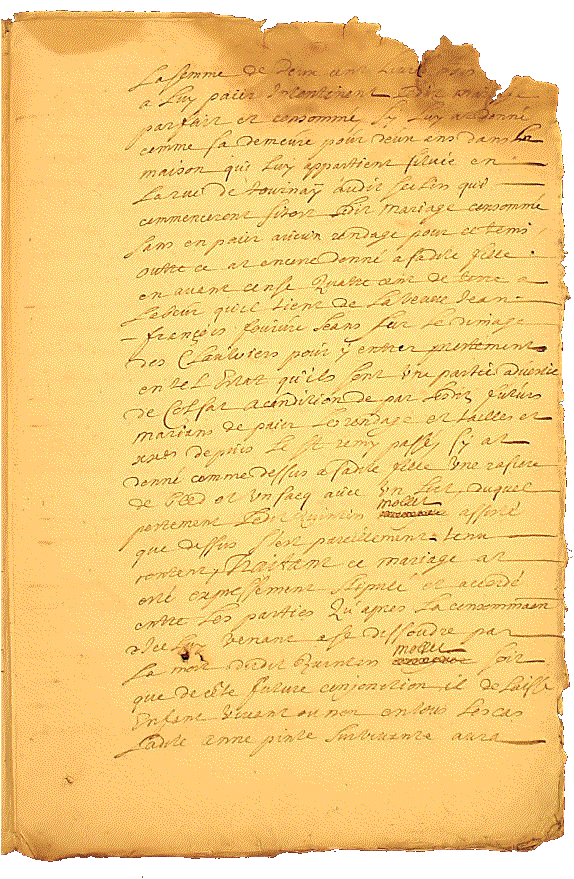 La somme de deux cent livre
a luy paier Incontinent ledit mariage
parfait et consommé sy luy at donné
comme sa demeure pour deux ans dans la
maison qui luy appartient située en
La rue de tournay audit Seclin qui
commenceront sitost ledit mariage consommé
sans en paier aucun rendage pour ce tems
outre ce at encore donné a sadite fille
en avant cense quatre cent de terre a
Labeur qu'il tient de La veuve Jean
françois
des Clauwiers pour y entrer presentement
en tel Estat qu'ils sont une partie advestie
de Colsat a condition de par lesdits futurs
marians de paier les rendage et tailles et
depuis le St remy passés sy at
donné comme dessus a sadite fille une rasiere
de bled et un sacq avecq un Lict, duquel
portement ledit Quintin mollet assisté
que dessus s'est pareillement tenu
content, Traitant ce mariage at
esté expressement stipulé et accordé
entre Les parties Qu'apres La consommation
d'Iceluy venant a se dissoudre par
La mort dudit Quintin mollet soit
que de cette future conjonction il delaisse
Enfant vivant ou non en tous Les cas
Ladite anne pinte survivante aura